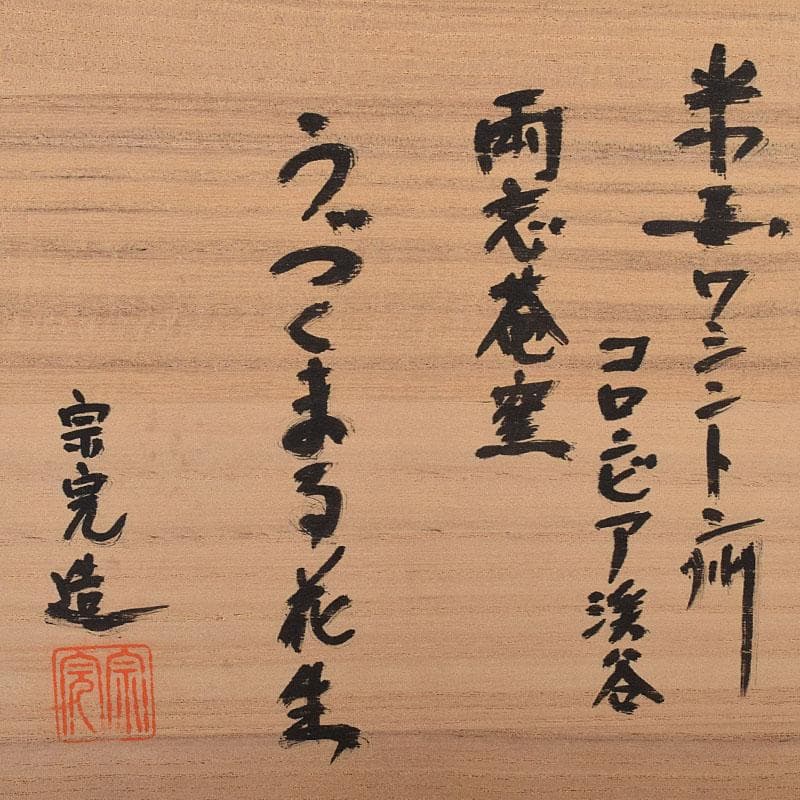 米国ワシントン州
コロンビア渓谷
雨忘菴窯
うづくまる花生
宗完造
宗完